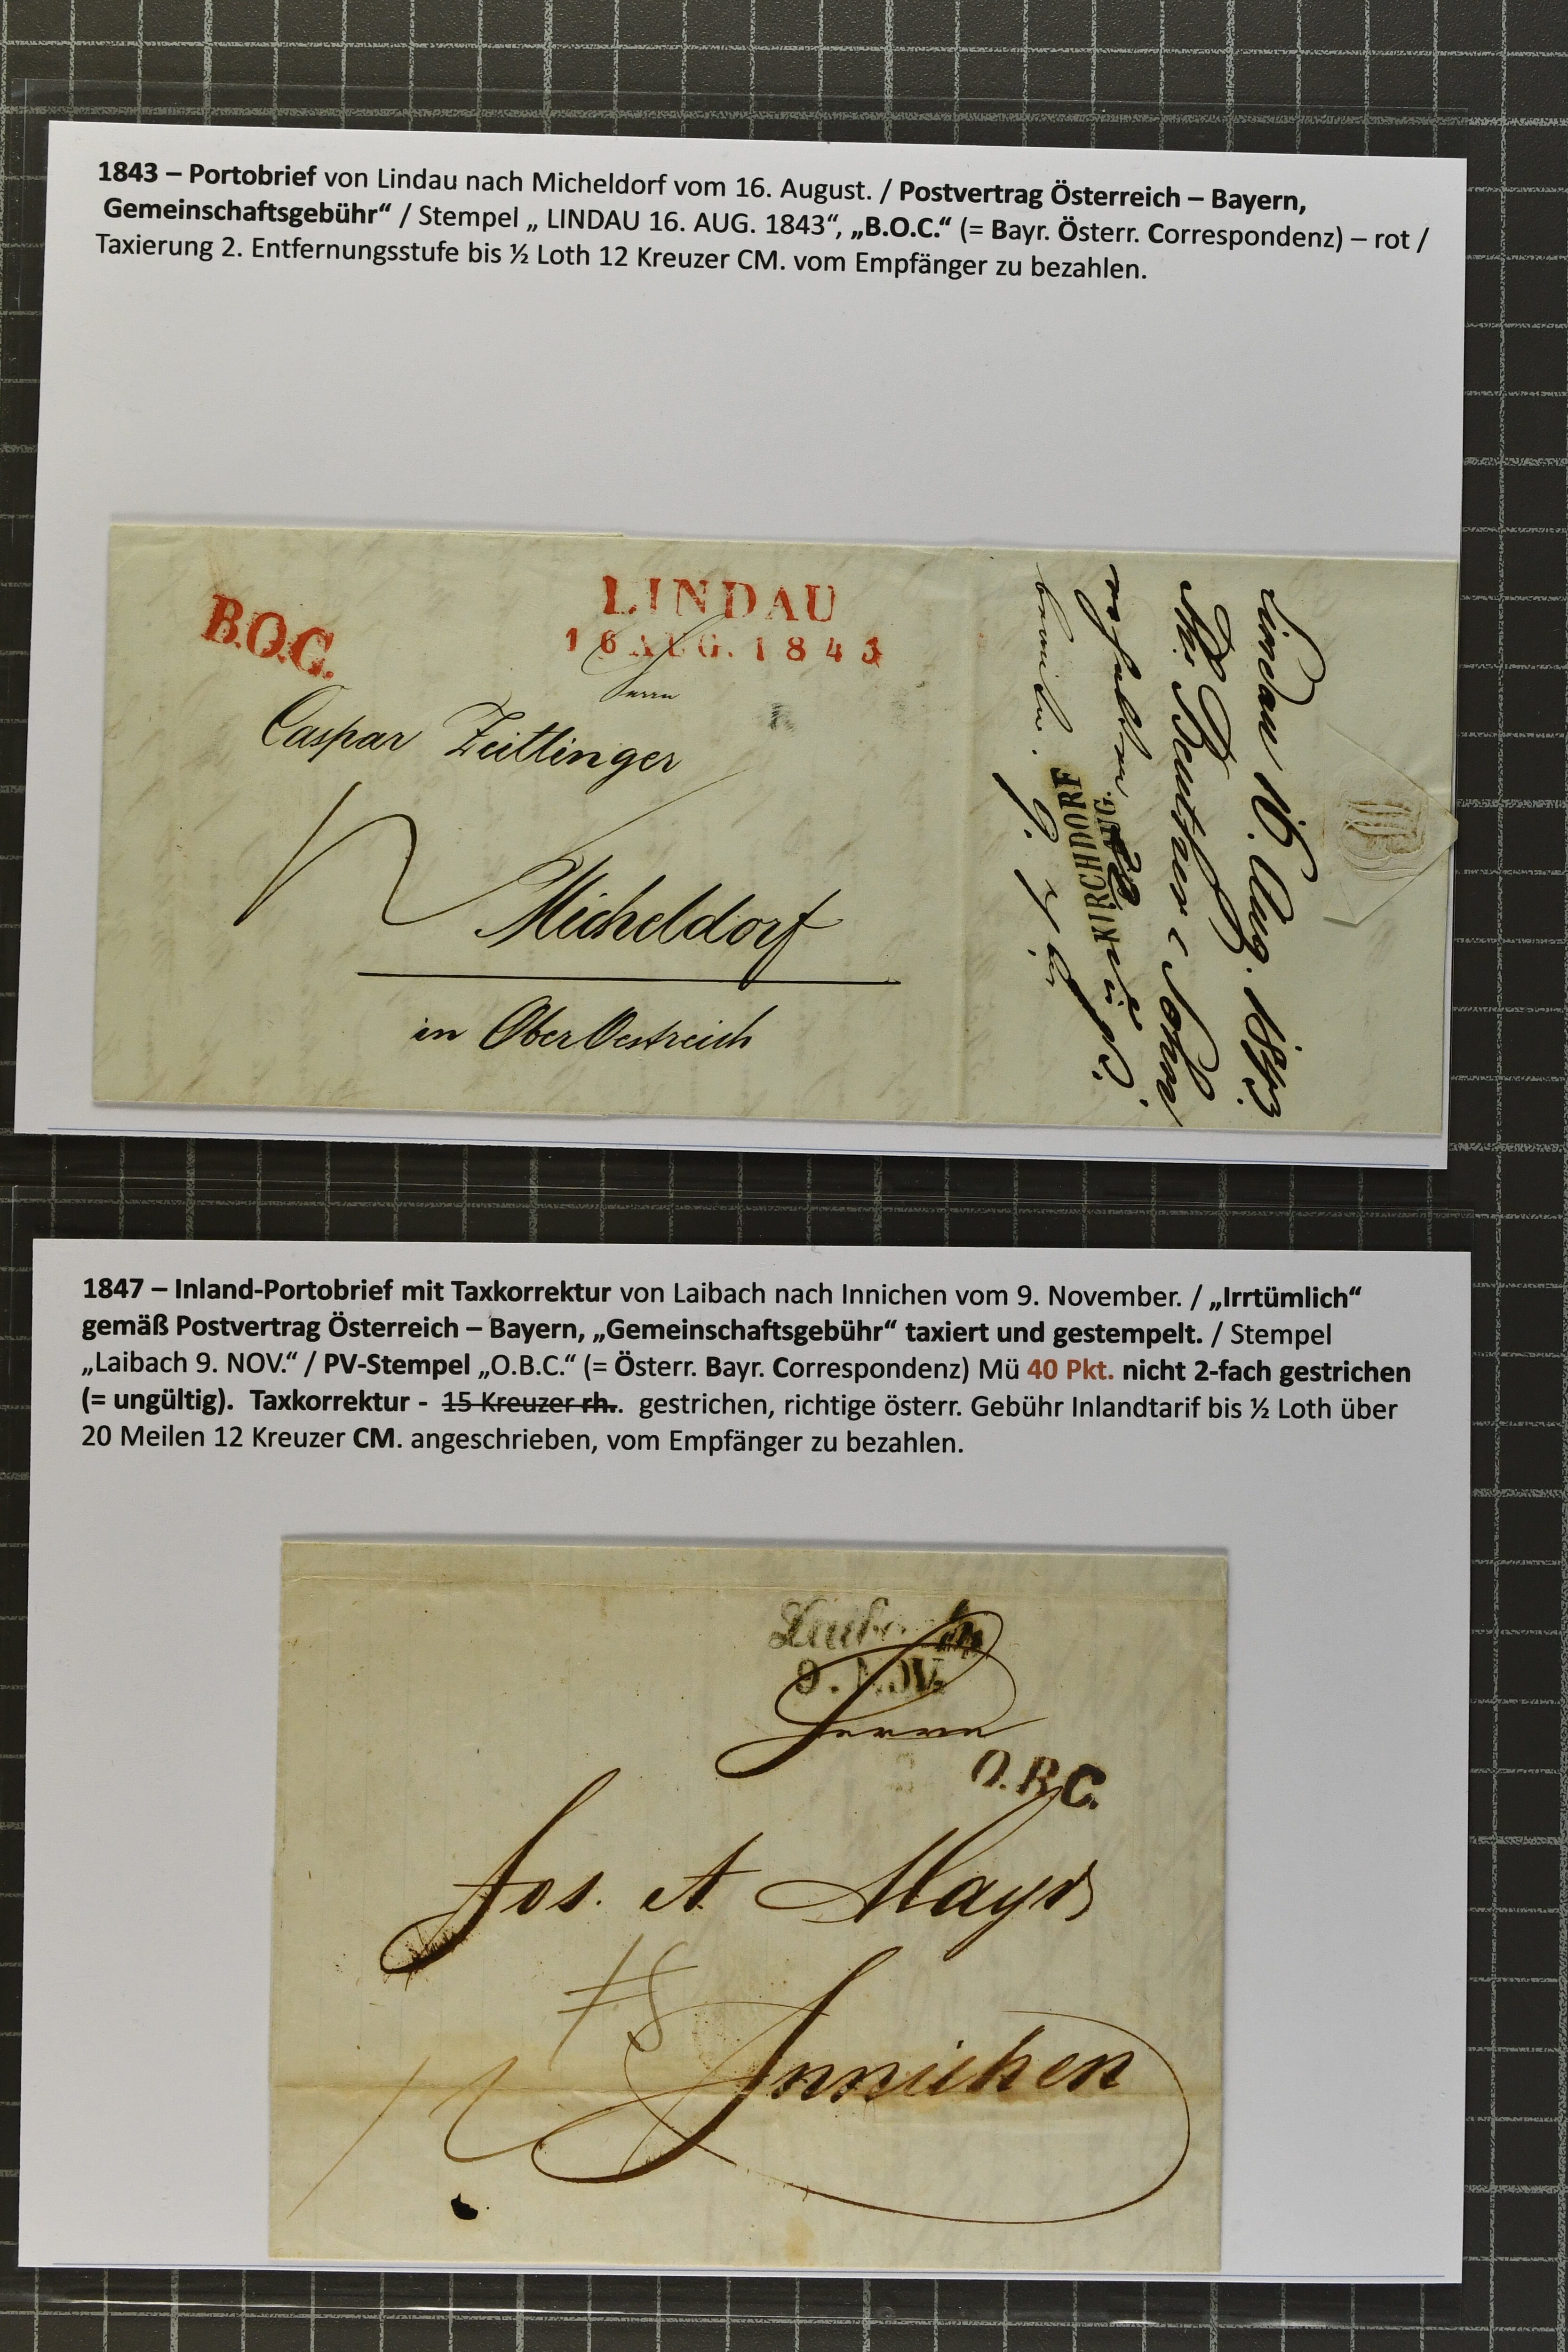 1843 – Portobrief von Lindau nach Micheldorf vom 16. August. / Postvertrag Österreich – Bayern,
Gemeinschaftsgebühr“ / Stempel „ LINDAU 16. AUG. 1843“, „B.O.C.“ (= Bayr. Österr. Correspondenz) – rot /
Taxierung 2. Entfernungsstufe bis ½ Loth 12 Kreuzer CM. vom Empfänger zu bezahlen.
B.O.C.
LINDAU
16 AUG. 1843
Herrn
Caspar Zeitlinger
12
Micheldorf
in OberOestreich
Lindau 16. Aug. 1843.
KIRCHDORF
AUG.
1847 – Inland-Portobrief mit Taxkorrektur von Laibach nach Innichen vom 9. November. / „Irrtümlich“
gemäß Postvertrag Österreich – Bayern, „Gemeinschaftsgebühr“ taxiert und gestempelt. / Stempel
„Laibach 9. NOV.“ / PV-Stempel „O.B.C.“ (= Österr. Bayr. Correspondenz) Mü 40 Pkt. nicht 2-fach gestrichen
(= ungültig). Taxkorrektur - 15 Kreuzer rh.. gestrichen, richtige österr. Gebühr Inlandtarif bis ½ Loth über
20 Meilen 12 Kreuzer CM. angeschrieben, vom Empfänger zu bezahlen.
Laibach
9. NOV.
Herrn
O.B.C.
Jos. et Mayr
Innichen
12